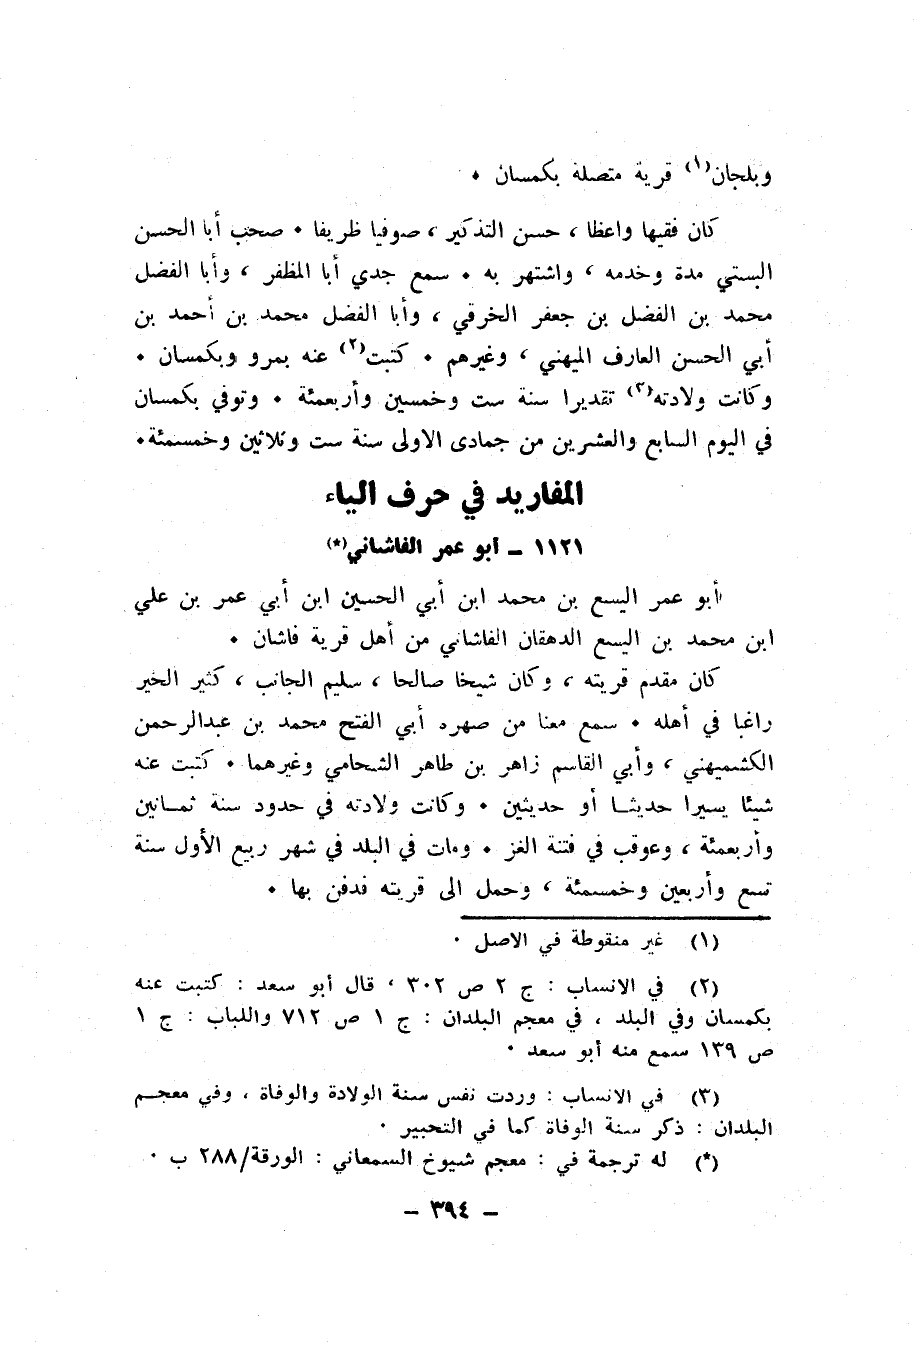 وبلجان(١) قرية متصلة بكمسان .
كان فقيها واعظا ، حسن التذكير ، صوفيا ظريفا . صحب أبا الحسن
البستي مدة وخدمه ، واشتهر به . سمع جدي أبا المظفر ، وأبا الفضل
محمد بن الفضل بن جعفر الخرقي ، وأبا الفضل محمد بن أحمد بن
أبي الحسن العارف الميهني ، وغيرهم . كتبت(٢) عنه بمرو وبكمسان .
وكانت ولادته(٣) تقديرا سنة ست وخمسين وأربعمئة . وتوفي بكمسان
في اليوم السابع والعشرين من جمادى الاولى سنة ست وثلاثين وخمسمئة .
المفاريد في حرف الياء
١١٢١ – أبو عمر الفاشاني(*)
أبو عمر اليسع بن محمد ابن أبي الحسين ابن أبي عمر بن علي
ابن محمد بن اليسع الدهقان الفاشاني من أهل قرية فاشان .
كان مقدم قريته ، وكان شيخا صالحا ، سليم الجانب ، كثير الخير
راغبا في أهله . سمع معنا من صهره أبي الفتح محمد بن عبدالرحمن
الكشميهني ، وأبي القاسم زاهر بن طاهر الشحامي وغيرهما . كتبت عنه
شيئا يسيرا حديثا أو حديثين . وكانت ولادته في حدود سنة ثمانين
وأربعمئة ، وعوقب في فتنة الغز . ومات في البلد في شهر ربيع الأول سنة
تسع وأربعين وخمسمئة ، وحمل الى قريته فدفن بها .
(١) غير منقوطة في الاصل .
(٢) في الانساب : ج ٢ ص ٣٠٢ ، قال أبو سعد : كتبت عنه
بكمسان وفي البلد ، في معجم البلدان : ج ١ ص ٧١٢ واللباب : ج ١
ص ١٣٩ سمع منه أبو سعد .
(٣) في الانساب : وردت نفس سنة الولادة والوفاة ، وفي معجم
البلدان : ذكر سنة الوفاة كما في التحبير .
(*) له ترجمة في : معجم شيوخ السمعاني : الورقة/٢٨٨ ب .
– ٣٩٤ –